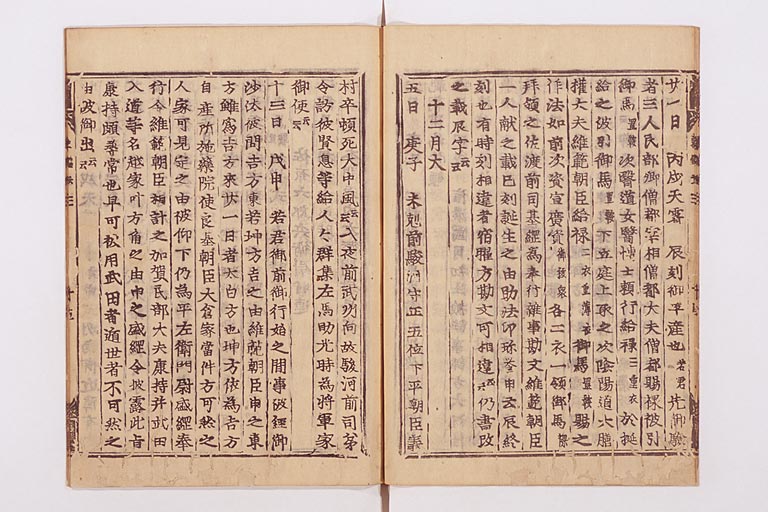 廿一日　丙戌天霽　辰刻御平産也若君先御驗
者三人民部卿僧都宰相僧都大夫僧都賜祿被引
御馬置鞍次醫道女醫博士頼行給祿三重衣於挺
給之被引御馬置鞍下立庭上取之次陰陽道大膳
權大夫維範朝臣給祿二衣重薄衣御馬置鞍賜之
作法如前次資宣廣資各二衣一領御馬
拜領之佐渡前司基綱為奉行雜事勘文維範朝臣
一人献之載巳刻誕生之由助法印珎誉申云辰終
刻也有時刻相違者宿曜方勘文可相違云云仍書改
之載辰字云云
十二月大
五日　庚子　未剋前駿河守正五位下平朝臣義
村卒頓死大中風云云入夜前武州向故駿河前司第
令訪彼賢息等給人々群集左馬助光時為將軍家
御使云云
十三日　戊申　若君御前御行始之間事被經御
沙汰彼間吉方東若坤方吉之由維範朝臣申之東
方雖為吉方來廿一日者太白方也坤方依為吉方
自産所施藥院使良基朝臣大倉家當件方可然之
人家可見定之由被仰下仍為平左衛門尉盛經奉
行令維範朝臣相計之加賀民部大夫康持并武田
入道等名越家叶方角之由申之盛經令披露此旨
康持頗尋常也早可松用武田者遁世者不可然之
由被仰出云云